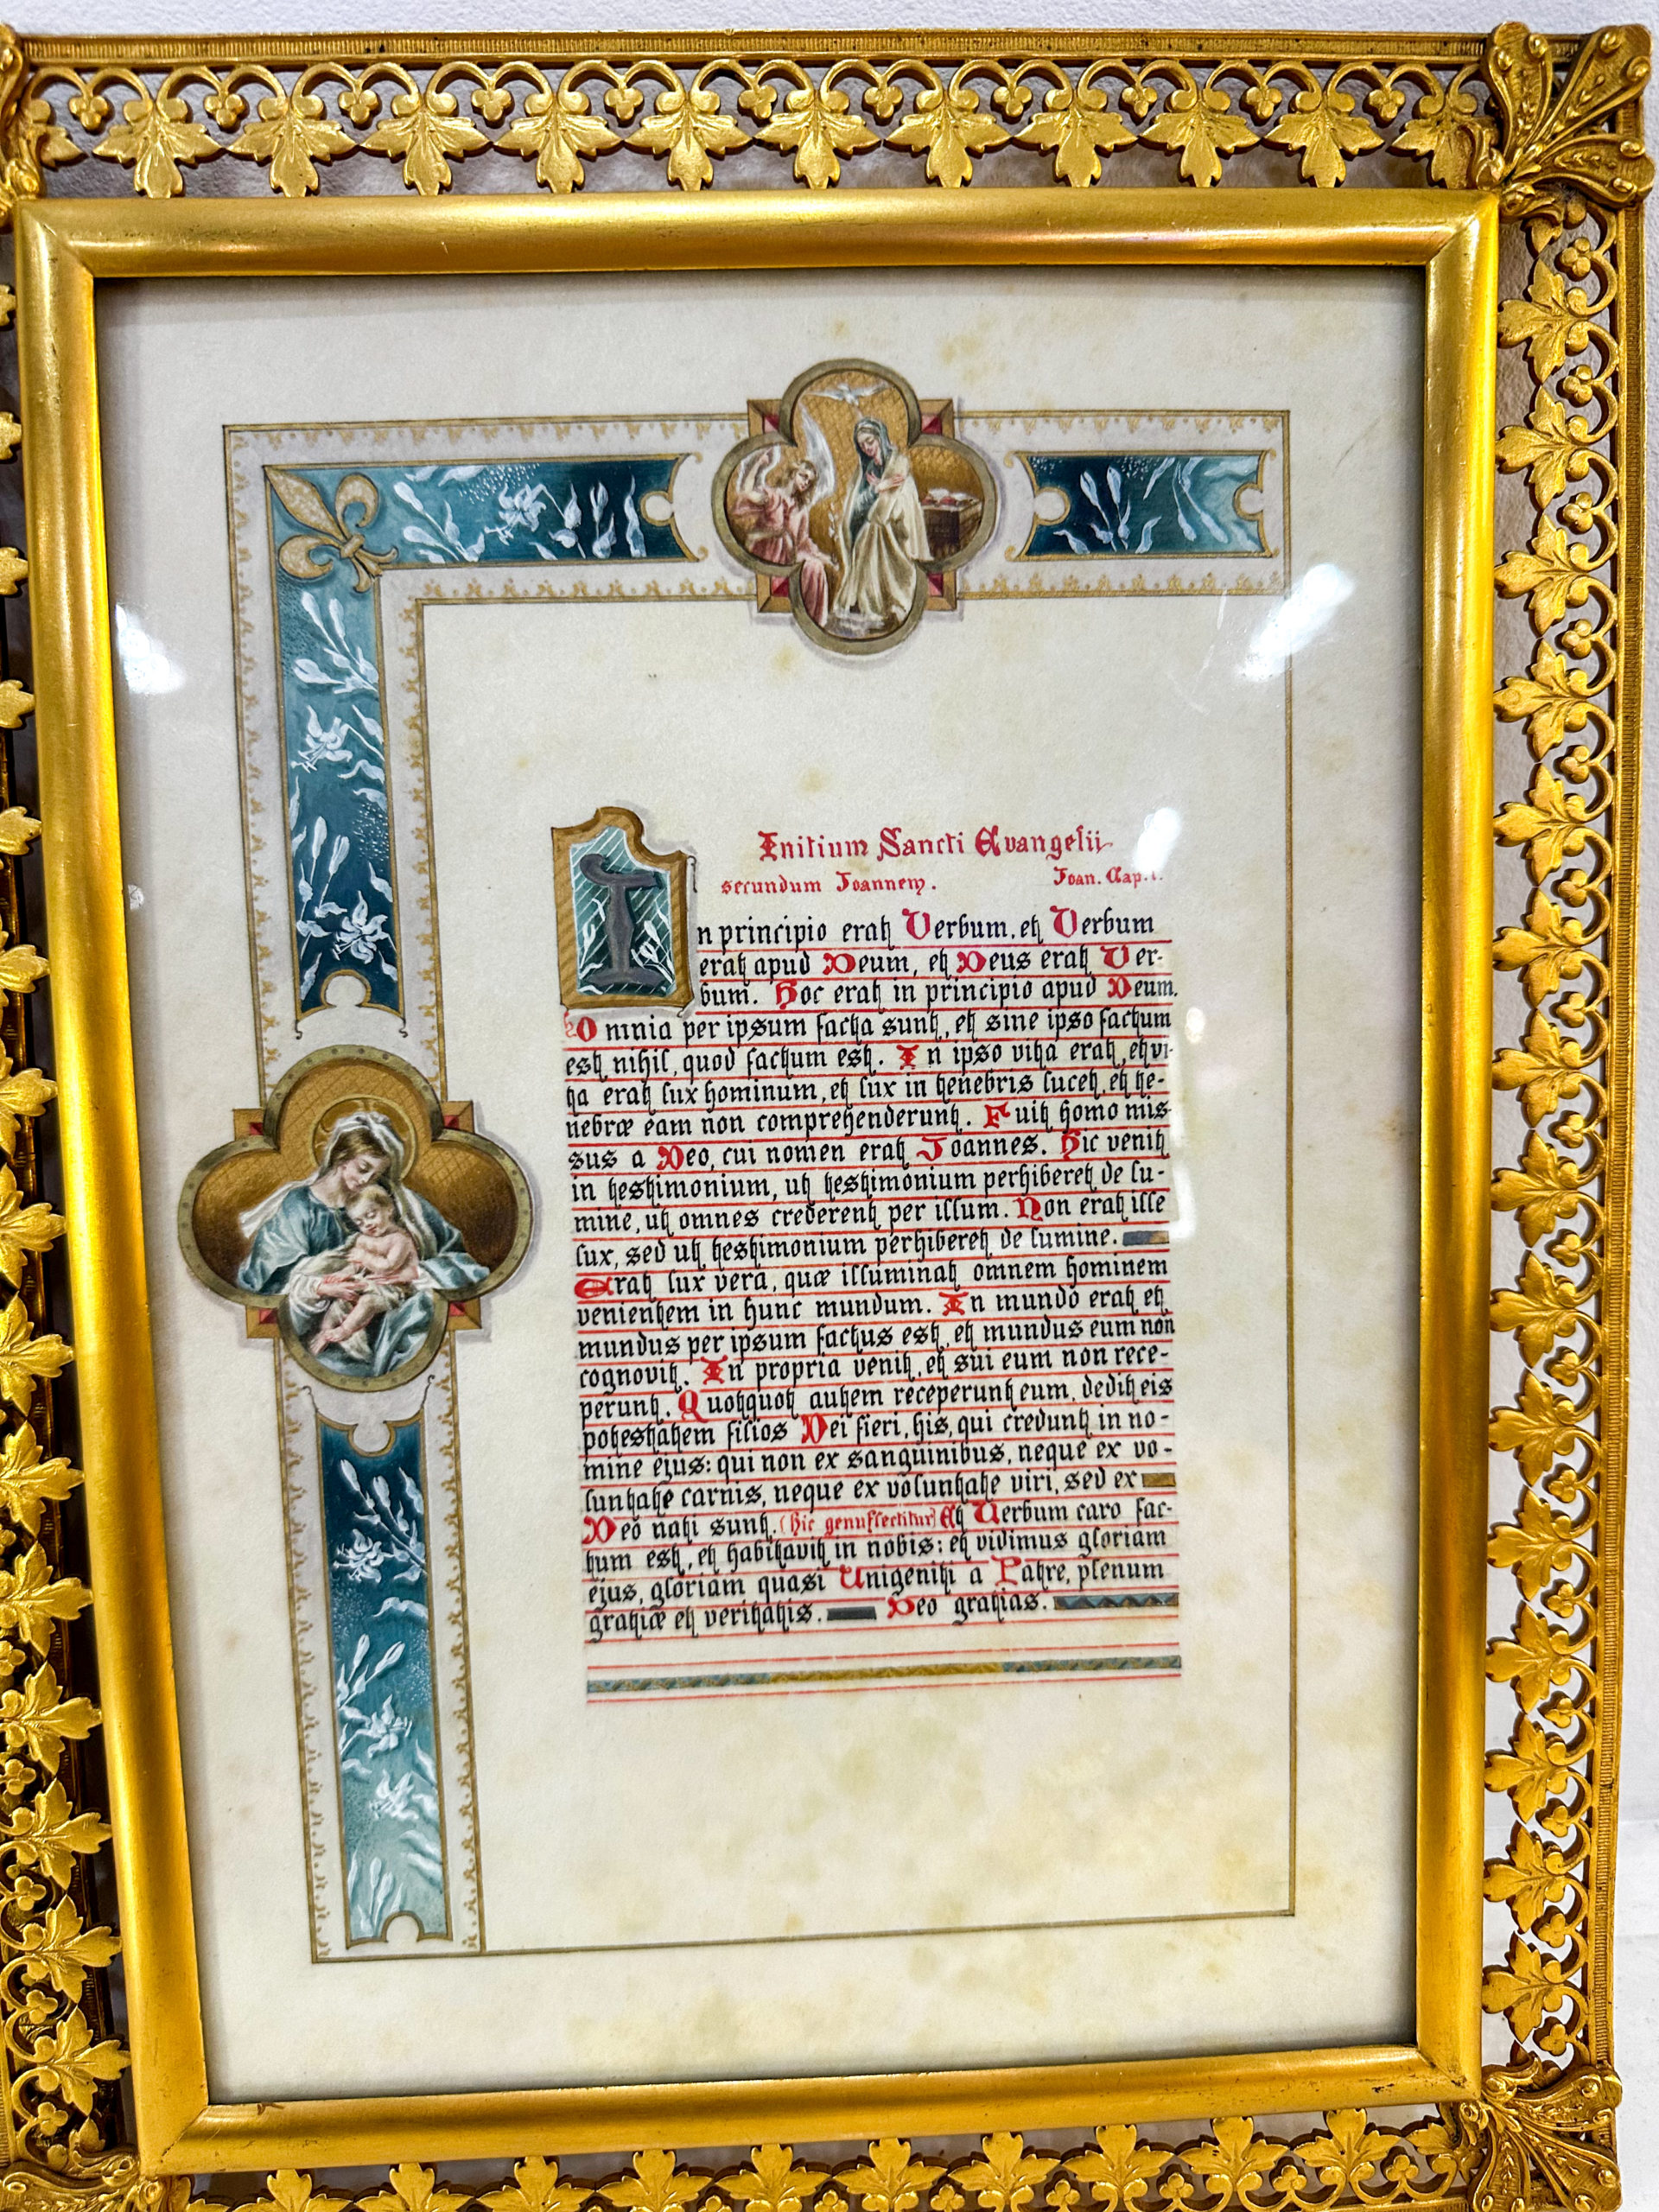 Initium Sancti Evangelii
secundum Joannem. Joan. Cap. I.
In principio erat Verbum, et Verbum
erat apud Deum, et Deus erat Ver-
bum. Hoc erat in principio apud Deum.
Omnia per ipsum facta sunt, et sine ipso factum
est nihil, quod factum est. In ipso vita erat, et vi-
ta erat lux hominum, et lux in tenebris lucet, et te-
nebræ eam non comprehenderunt. Fuit homo mis-
sus a Deo, cui nomen erat Joannes. Hic venit
in testimonium, ut testimonium perhiberet de lu-
mine, ut omnes crederent per illum. Non erat ille
lux, sed ut testimonium perhiberet de lumine.
Erat lux vera, quæ illuminat omnem hominem
venientem in hunc mundum. In mundo erat et
mundus per ipsum factus est, et mundus eum non
cognovit. In propria venit, et sui eum non rece-
perunt. Quotquot autem receperunt eum, dedit eis
potestatem filios Dei fieri, his, qui credunt in no-
mine ejus: qui non ex sanguinibus, neque ex vo-
luntate carnis, neque ex voluntate viri, sed ex
Deo nati sunt. (Hic genuflectitur) Et Verbum caro fac-
tum est, et habitavit in nobis: et vidimus gloriam
ejus, gloriam quasi Unigeniti a Patre, plenum
gratiæ et veritatis. Deo gratias.